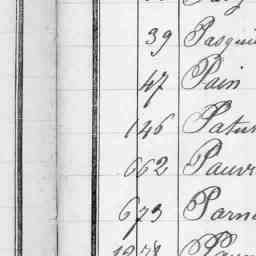 39 Pasqui
47 Pain
146 Patur
662 Pauvr
673 Parn